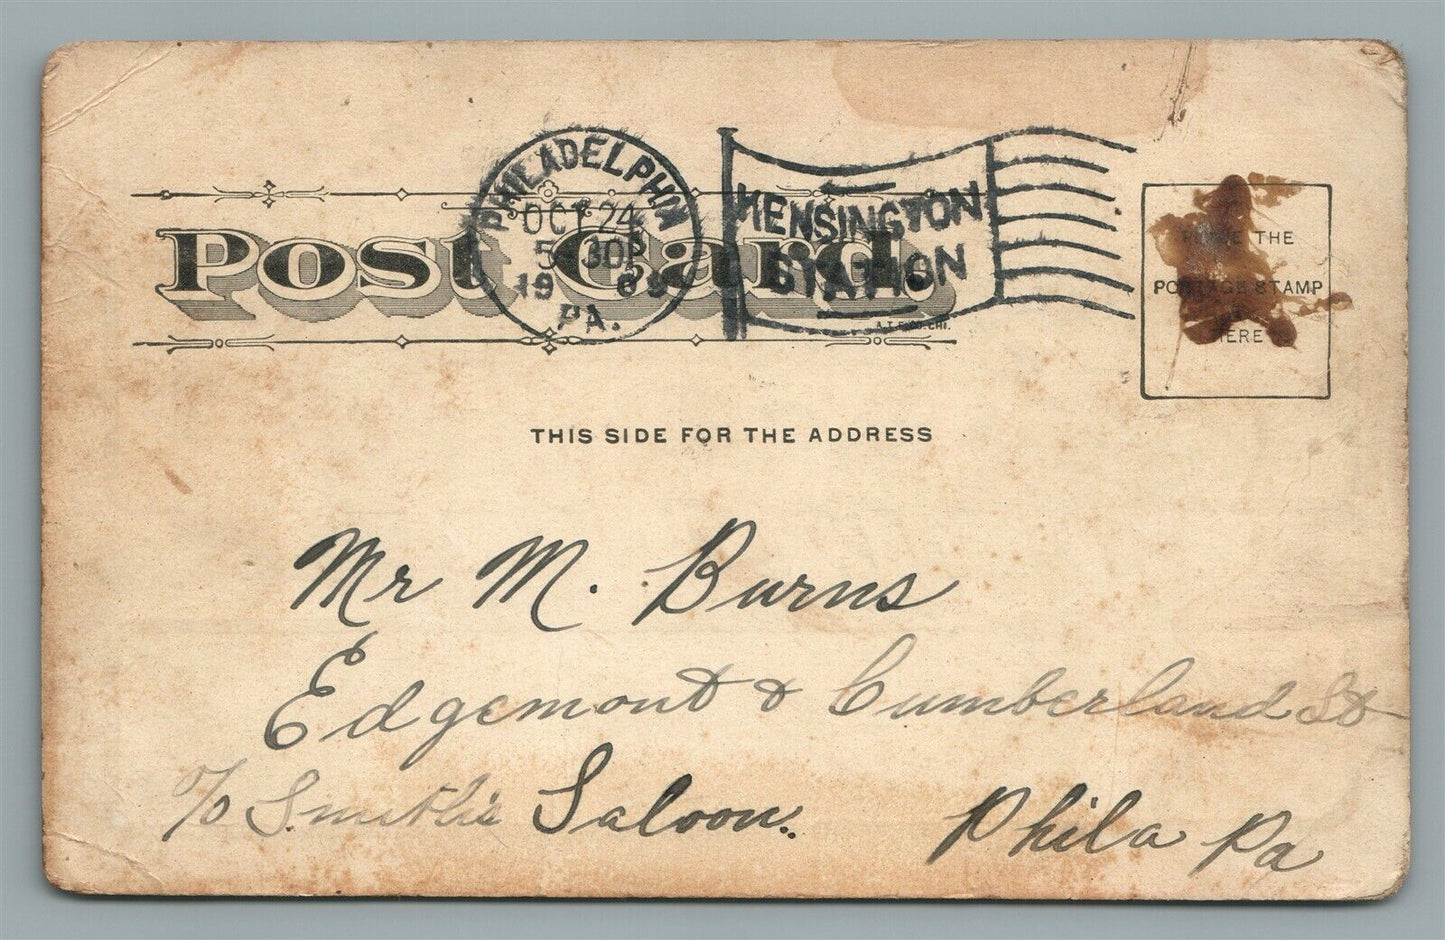 Post Card.
PHILADELPHIA
OCT 24
5 30P
19
PA.
KENSINGTON
STATION
THE
POSTAGE STAMP
HERE
THIS SIDE FOR THE ADDRESS
Mr M. Burns
Edgemont & Cumberland St
c/o Smith's Saloon.
Phila Pa